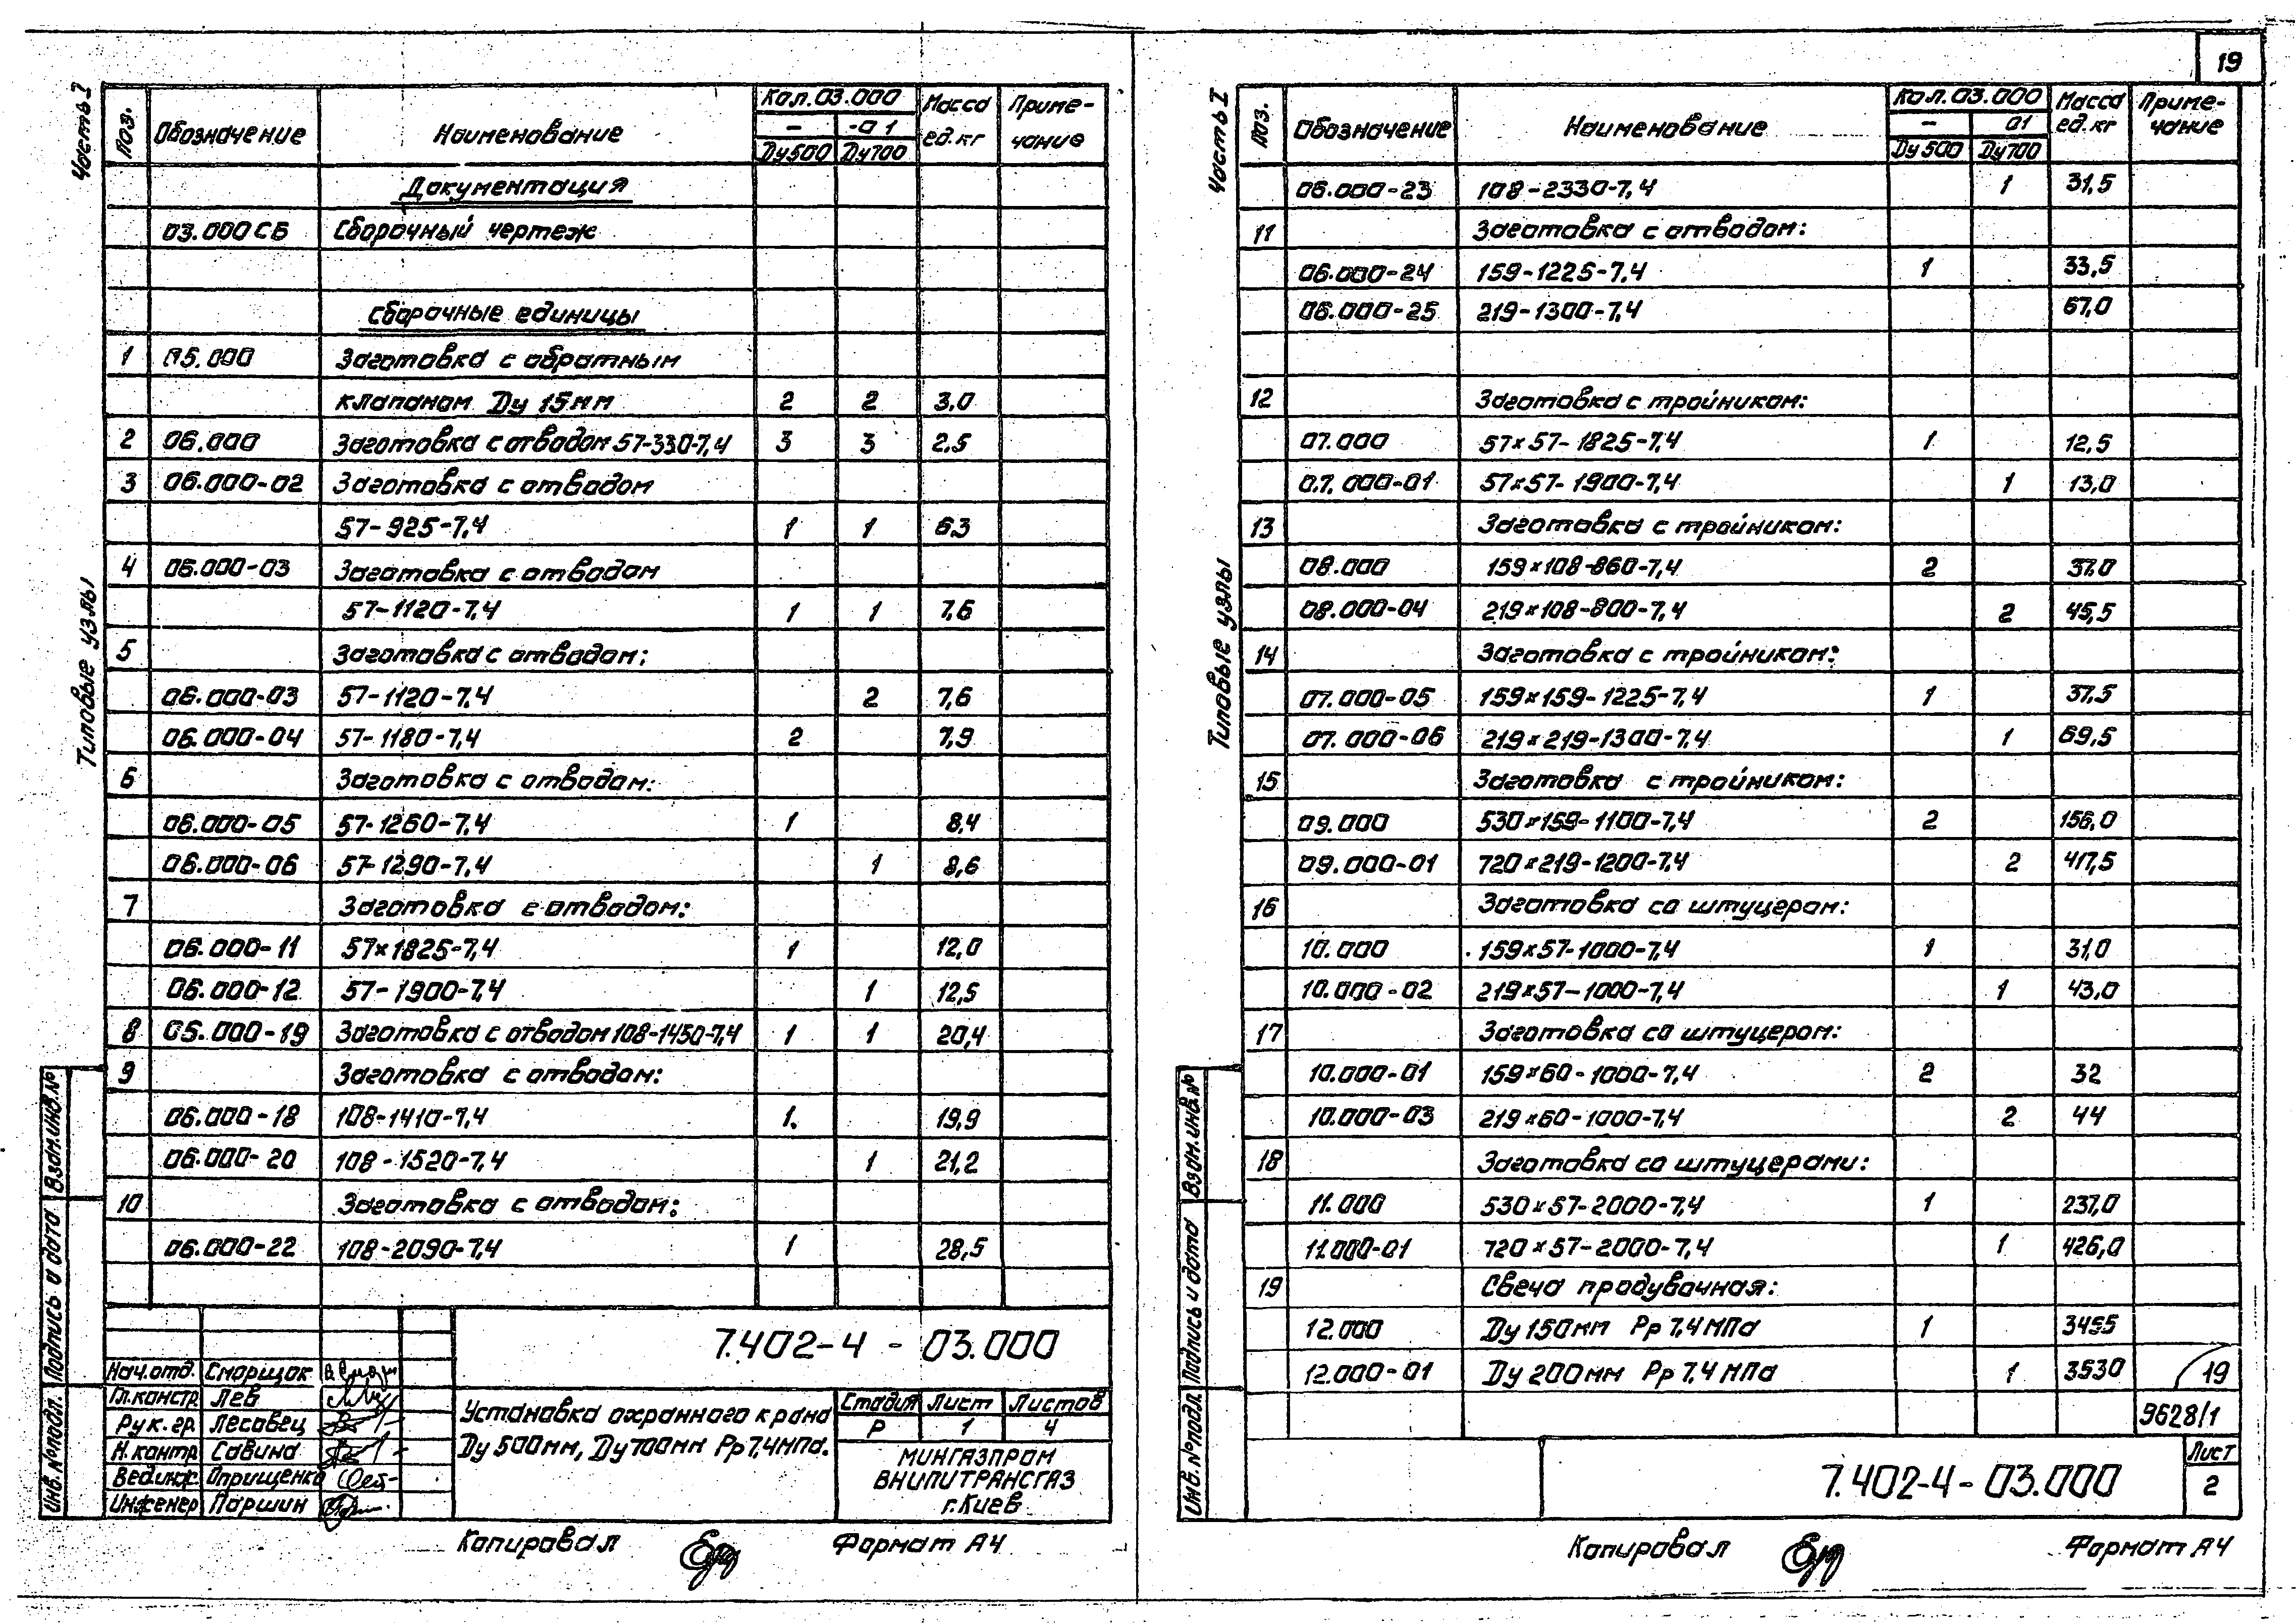 Часть I
Типовые узлы
Поз. Обозначение Наименование Кол. 03.000 Масса ед. кг Приме-чание
- -01
Ду500 Ду700
Документация
03.000СБ Сборочный чертеж
Сборочные единицы
1 05.000 Заготовка с обратным
клапаном Ду 15мм 2 2 3,0
2 06.000 Заготовка с отводом 57-330-7,4 3 3 2,5
3 06.000-02 Заготовка с отводом
57-925-7,4 1 1 6,3
4 06.000-03 Заготовка с отводом
57-1120-7,4 1 1 7,6
5 Заготовка с отводом:
06.000-03 57-1120-7,4 2 7,6
06.000-04 57-1180-7,4 2 7,9
6 Заготовка с отводом:
06.000-05 57-1260-7,4 1 8,4
06.000-06 57-1290-7,4 1 8,6
7 Заготовка с отводом:
06.000-11 57×1825-7,4 1 12,0
06.000-12 57-1900-7,4 1 12,5
8 05.000-19 Заготовка с отводом 108-1450-7,4 1 1 20,4
9 Заготовка с отводом:
06.000-18 108-1410-7,4 1 19,9
06.000-20 108-1520-7,4 1 21,2
10 Заготовка с отводом:
06.000-22 108-2090-7,4 1 28,5
7.402-4-03.000
Нач.отд. Смарщок
Гл.констр. Лев
Рук.гр. Лесовец
Н.контр Савина
Вед.инж. Оприщенко
Инженер Паршин
Установка охранного крана
Ду 500мм, Ду 700мм Рр 7,4МПа.
Стадия Лист Листов
Р 1 4
МИНГАЗПРОМ
ВНИПИТРАНСГАЗ
г. Киев
Инв.№подл. Подпись и дата Взам.инв.№
Копировал Формат А4
19
Часть I
Типовые узлы
Поз. Обозначение Наименование Кол. 03.000 Масса ед. кг Приме-чание
- 01
Ду 500 Ду700
06.000-23 108-2330-7,4 1 31,5
11 Заготовка с отводом:
06.000-24 159-1225-7,4 1 33,5
06.000-25 219-1300-7,4 67,0
12 Заготовка с тройником:
07.000 57×57-1825-7,4 1 12,5
07.000-01 57×57-1900-7,4 1 13,0
13 Заготовка с тройником:
08.000 159×108-860-7,4 2 37,0
08.000-04 219×108-800-7,4 2 45,5
14 Заготовка с тройником:
07.000-05 159×159-1225-7,4 1 37,5
07.000-06 219×219-1300-7,4 1 69,5
15 Заготовка с тройником:
09.000 530×159-1100-7,4 2 156,0
09.000-01 720×219-1200-7,4 2 417,5
16 Заготовка со штуцером:
10.000 159×57-1000-7,4 1 31,0
10.000-02 219×57-1000-7,4 1 43,0
17 Заготовка со штуцером:
10.000-01 159×60-1000-7,4 2 32
10.000-03 219×60-1000-7,4 2 44
18 Заготовка со штуцерами:
11.000 530×57-2000-7,4 1 237,0
11.000-01 720×57-2000-7,4 1 426,0
19 Свеча продувочная:
12.000 Ду 150мм Рр 7,4МПа 1 345,5
12.000-01 Ду 200мм Рр 7,4 МПа 1 353,0
19
9628/1
7.402-4-03.000
Лист
2
Инв.№подл. Подпись и дата Взам.инв.№
Копировал Формат А4